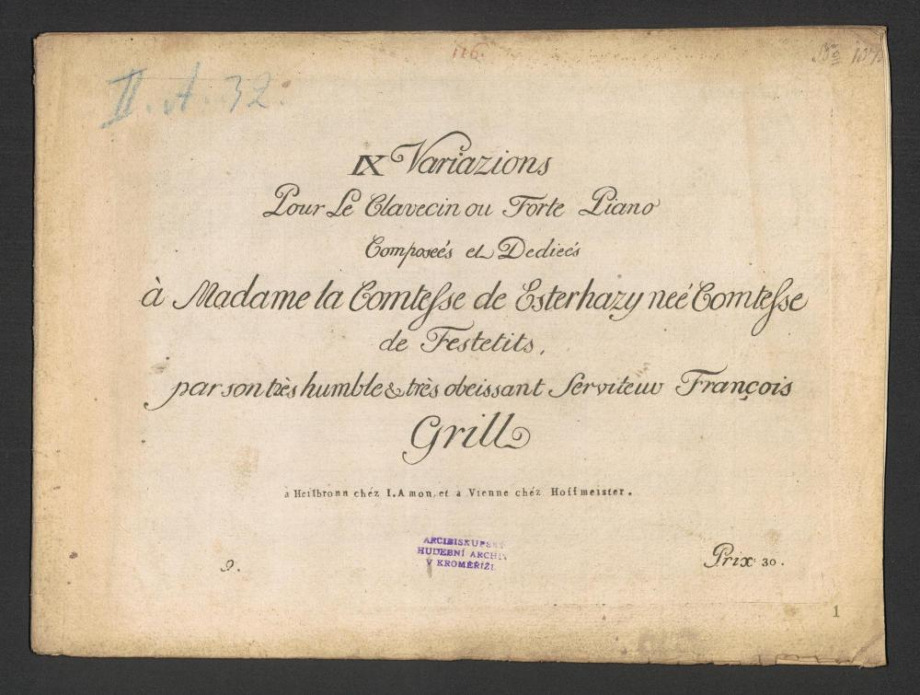 116.
II. A. 32.
IX Variazions
Pour Le Clavecin ou Forte Piano
Composeés et Dedieés
à Madame la Comtesse de Esterhazy neé Comtesse
de Festetits,
par son très humble & très obeissant Serviteur François
Grill
à Heilbronn chéz I. Amon, et a Vienne chéz Hoffmeister.
ARCIBISKUPSKÝ
HUDEBNÍ ARCHIV
V KROMĚŘÍŽI
9.
Prix 30.
1